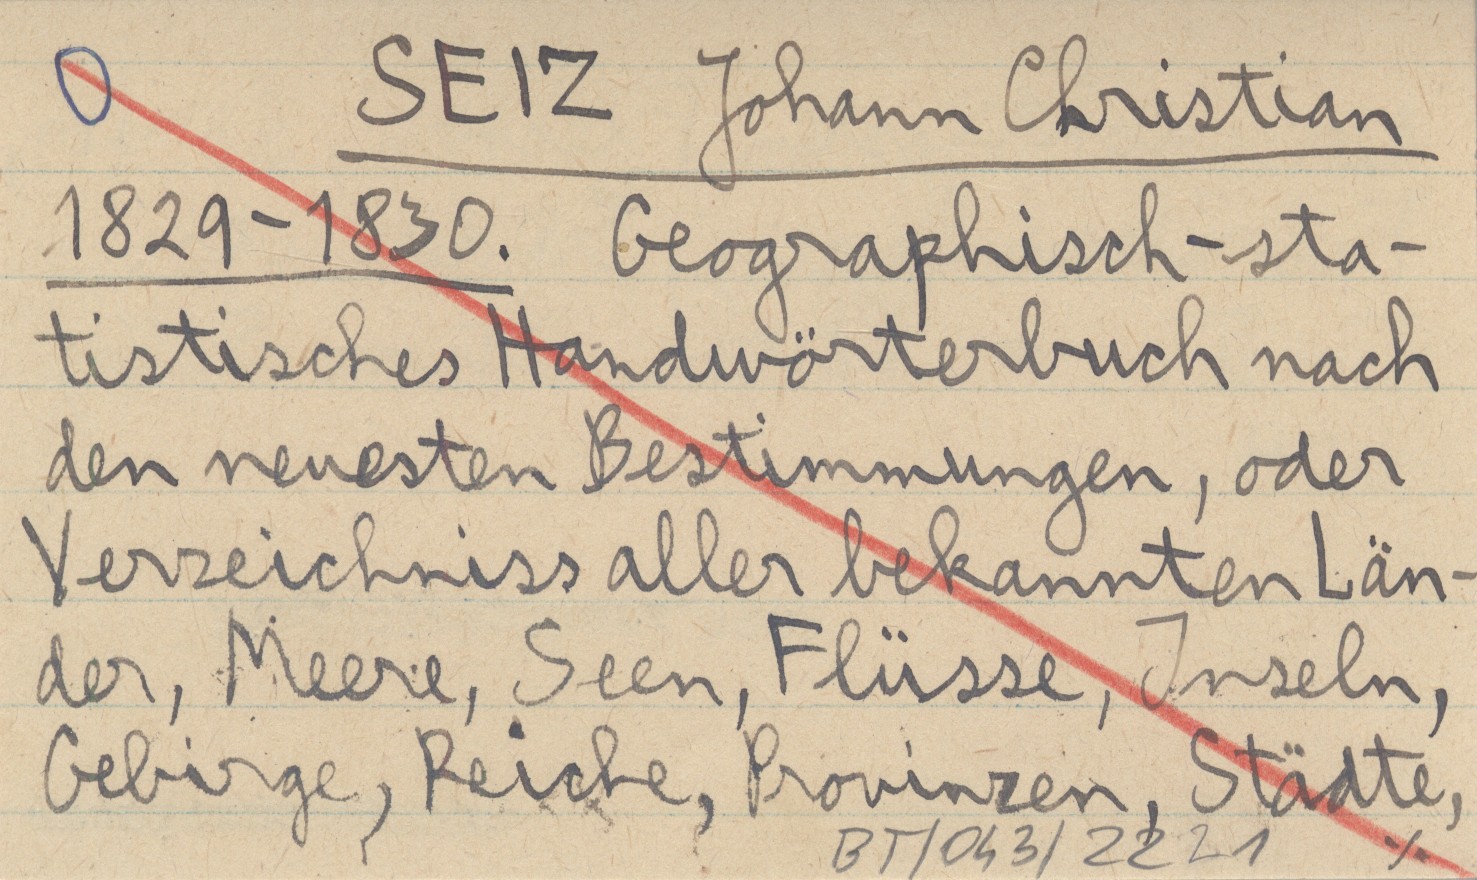 SEIZ Johann Christian
1829-1830. Geographisch-sta-
tistisches Handwörterbuch nach
den neuesten Bestimmungen, oder
Verzeichniss aller bekannten Län-
der, Meere, Seen, Flüsse, Inseln,
Gebirge, Reiche, Provinzen, Städte,
BT/043/2221 ./.